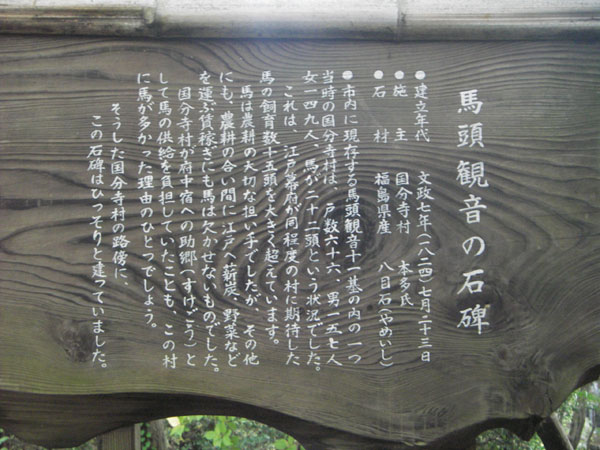 馬頭観音の石碑
●建立年代　文政七年(一八二四)七月二十三日
●施主　国分寺村　本多氏
●石材　福島県産　八目石(やめいし)
●市内に現存する馬頭観音十一基の内の一つ
当時の国分寺は、戸数六十六、男一五七人
女一四九人、馬が二十二頭という状況でした。
これは、江戸幕府が同程度の村に期待した
馬の飼育数十五頭を大きく超えています。
馬は農耕の大切な担い手でしたが、その他
にも、農耕の合い間に江戸へ薪炭、野菜など
を運ぶ賃稼ぎにも馬は欠かせないものでした。
国分寺村が府中宿への助郷(すけごう)と
して馬の供給を負担していたことも、この村
に馬が多かった理由のひとつでしょう。
そうした国分寺村の路傍に、
この石碑はひっそりと建っていました。